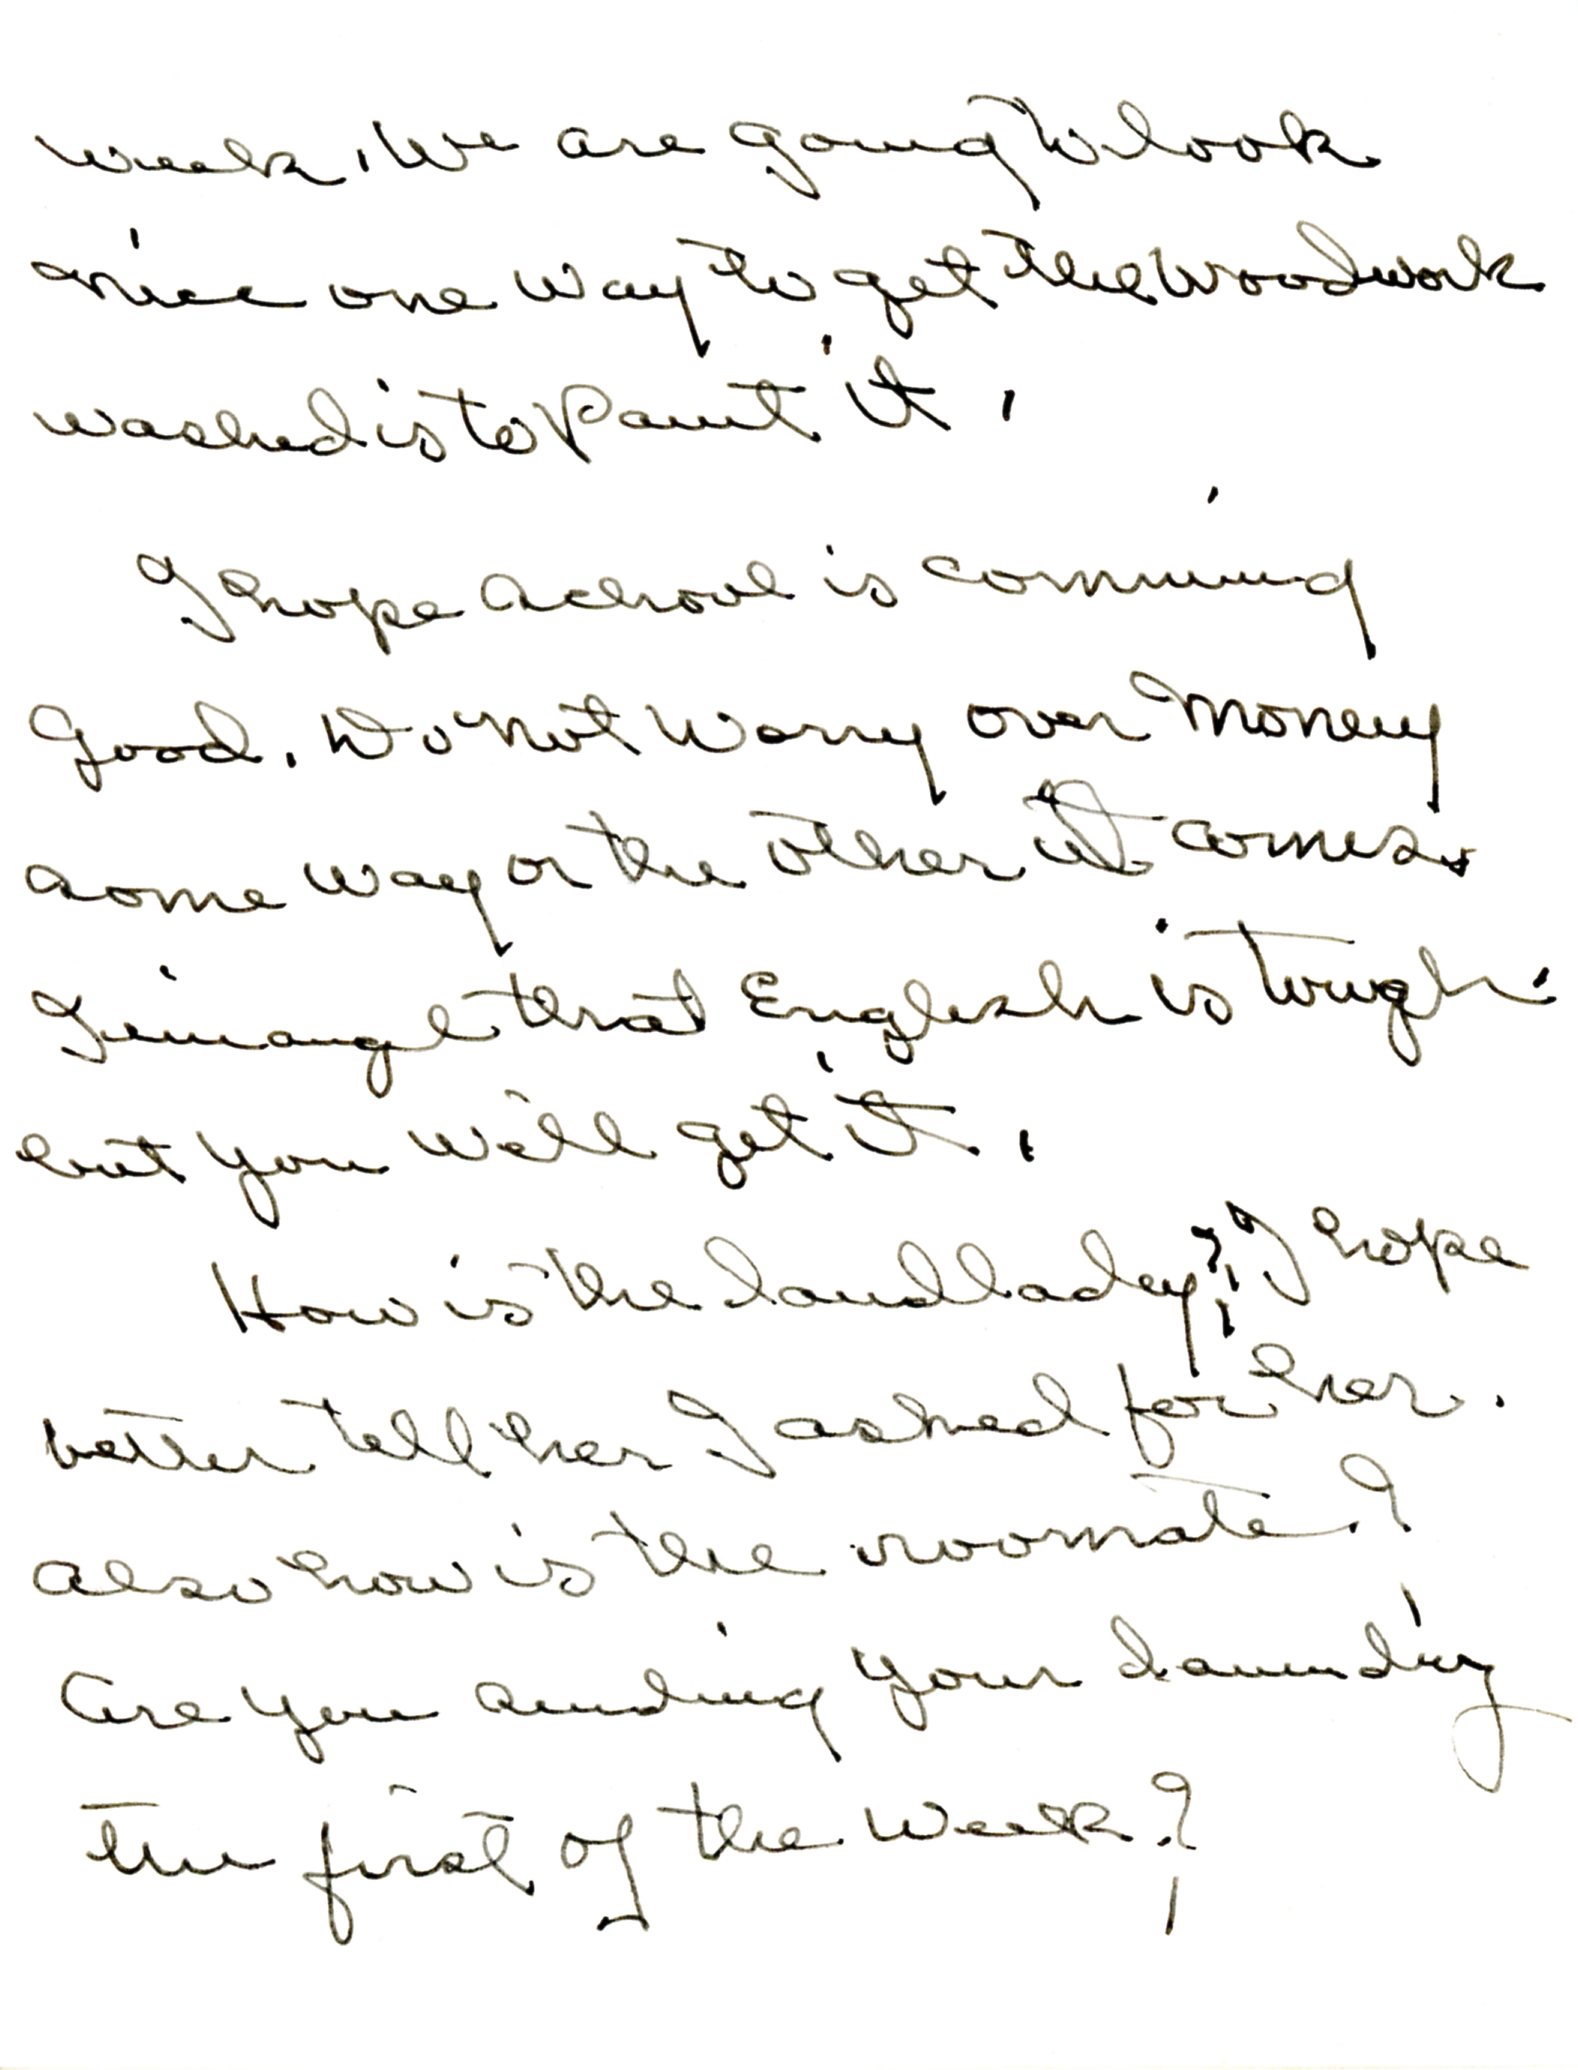 week. We are going to look
nice one way to get the woodwork
washed is to paint it.
I hope school is comming
good. Do not worry over money
some way or the other it comes.
I imangle that English is tough.
but you will get it.
How is the landlady? I hope
better tell her I asked for her.
also how is the roomate?
Are you sending your laundry
the first of the week?